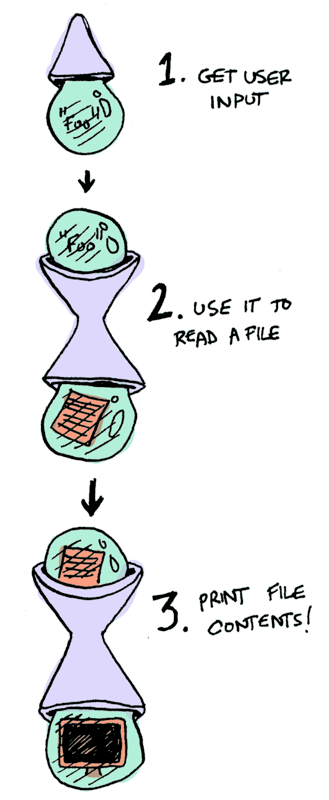 "Foo"
1. GET USER
INPUT
"Foo"
2. USE IT TO
READ A FILE
3. PRINT FILE
CONTENTS!